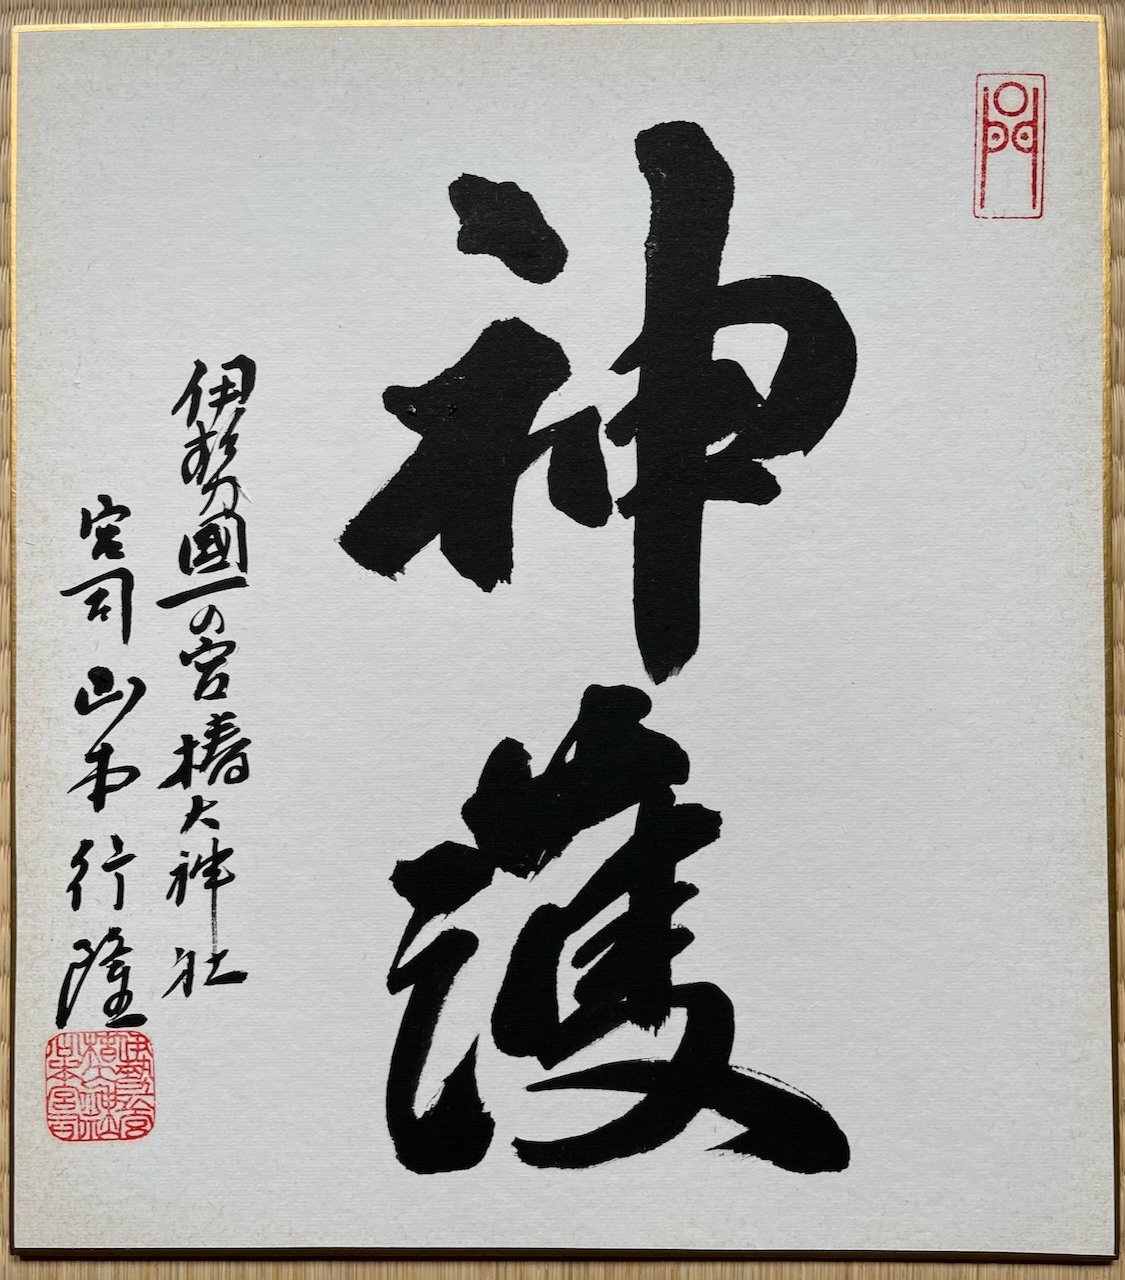 神護
伊勢國一の宮椿大神社
宮司山本行隆